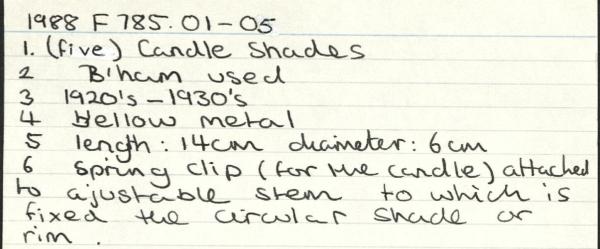 1988 F 785.01-05
1. (five) Candle Shades
2 B'ham used
3 1920's - 1930's
4 Yellow metal
5 length: 14cm diameter: 6cm
6 spring clip (for the candle) attached
to ajustable stem to which is
fixed the circular shade or
rim.